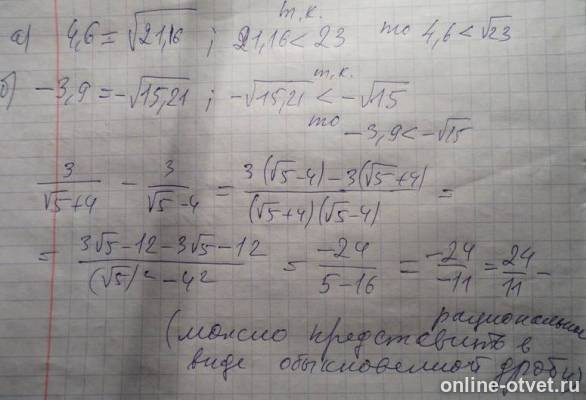 а) 4,6 = √21,16 ; т.к. 21,16 < 23 то 4,6 < √23
б) -3,9 = -√15,21 ; т.к. -√15,21 < -√15
то -3,9 < -√15
3/(√5+4) - 3/(√5-4) = (3(√5-4)-3(√5+4))/((√5+4)(√5-4)) =
= (3√5-12-3√5-12)/((√5)²-4²) = -24/(5-16) = -24/-11 = 24/11 -
рациональное
(можно представить в
виде обыкновенной дроби)
online-otvet.ru